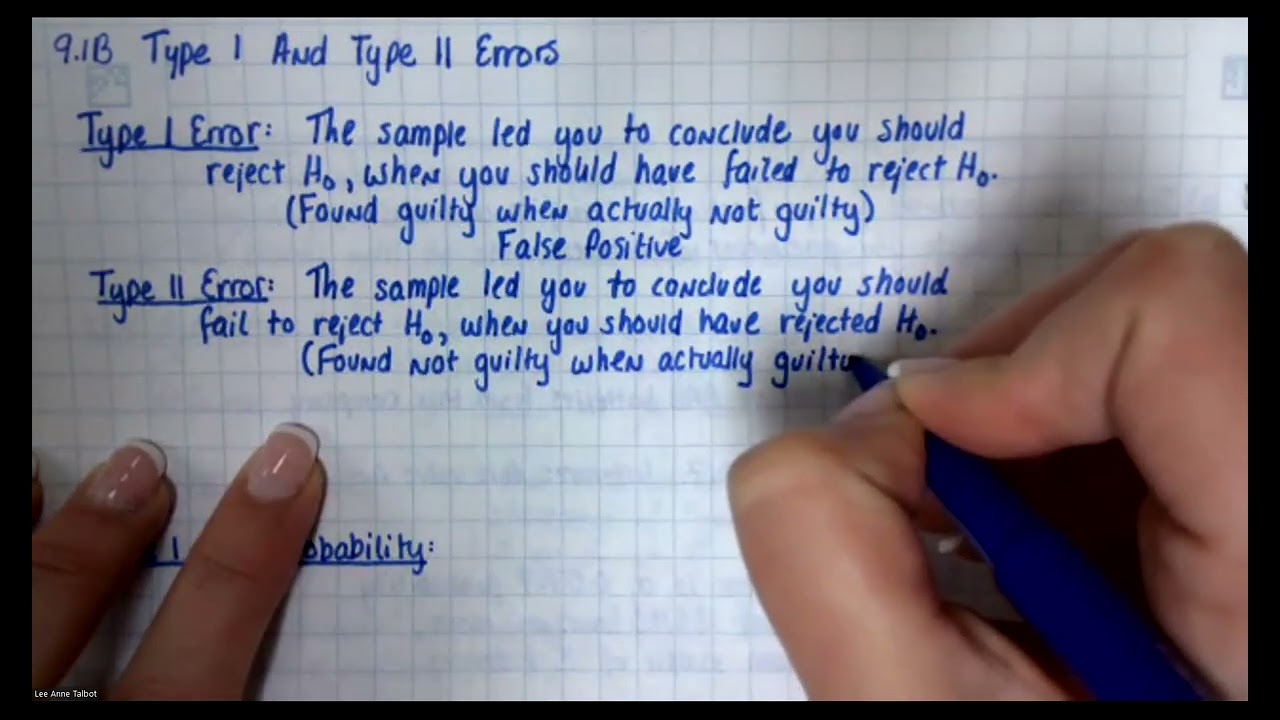 9.1B Type I And Type II Errors
Type I Error: The sample led you to conclude you should
reject H₀, when you should have failed to reject H₀.
(Found guilty when actually not guilty)
False Positive
Type II Error: The sample led you to conclude you should
fail to reject H₀, when you should have rejected H₀.
(Found not guilty when actually guilty
I
Lee Anne Talbot